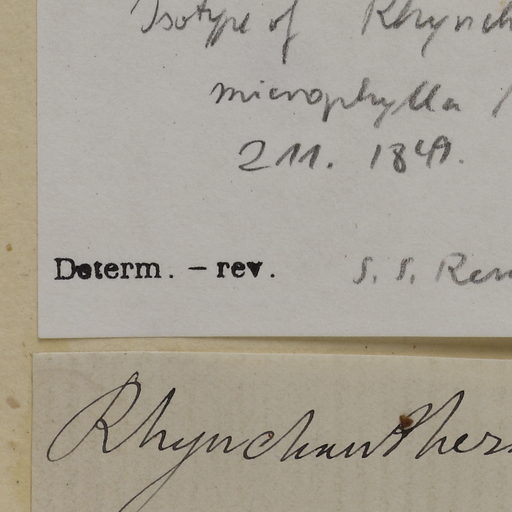 Isotype of Rhynch
microphylla
211. 1849.
Determ. – rev. S. S. Ren
Rhynchanther